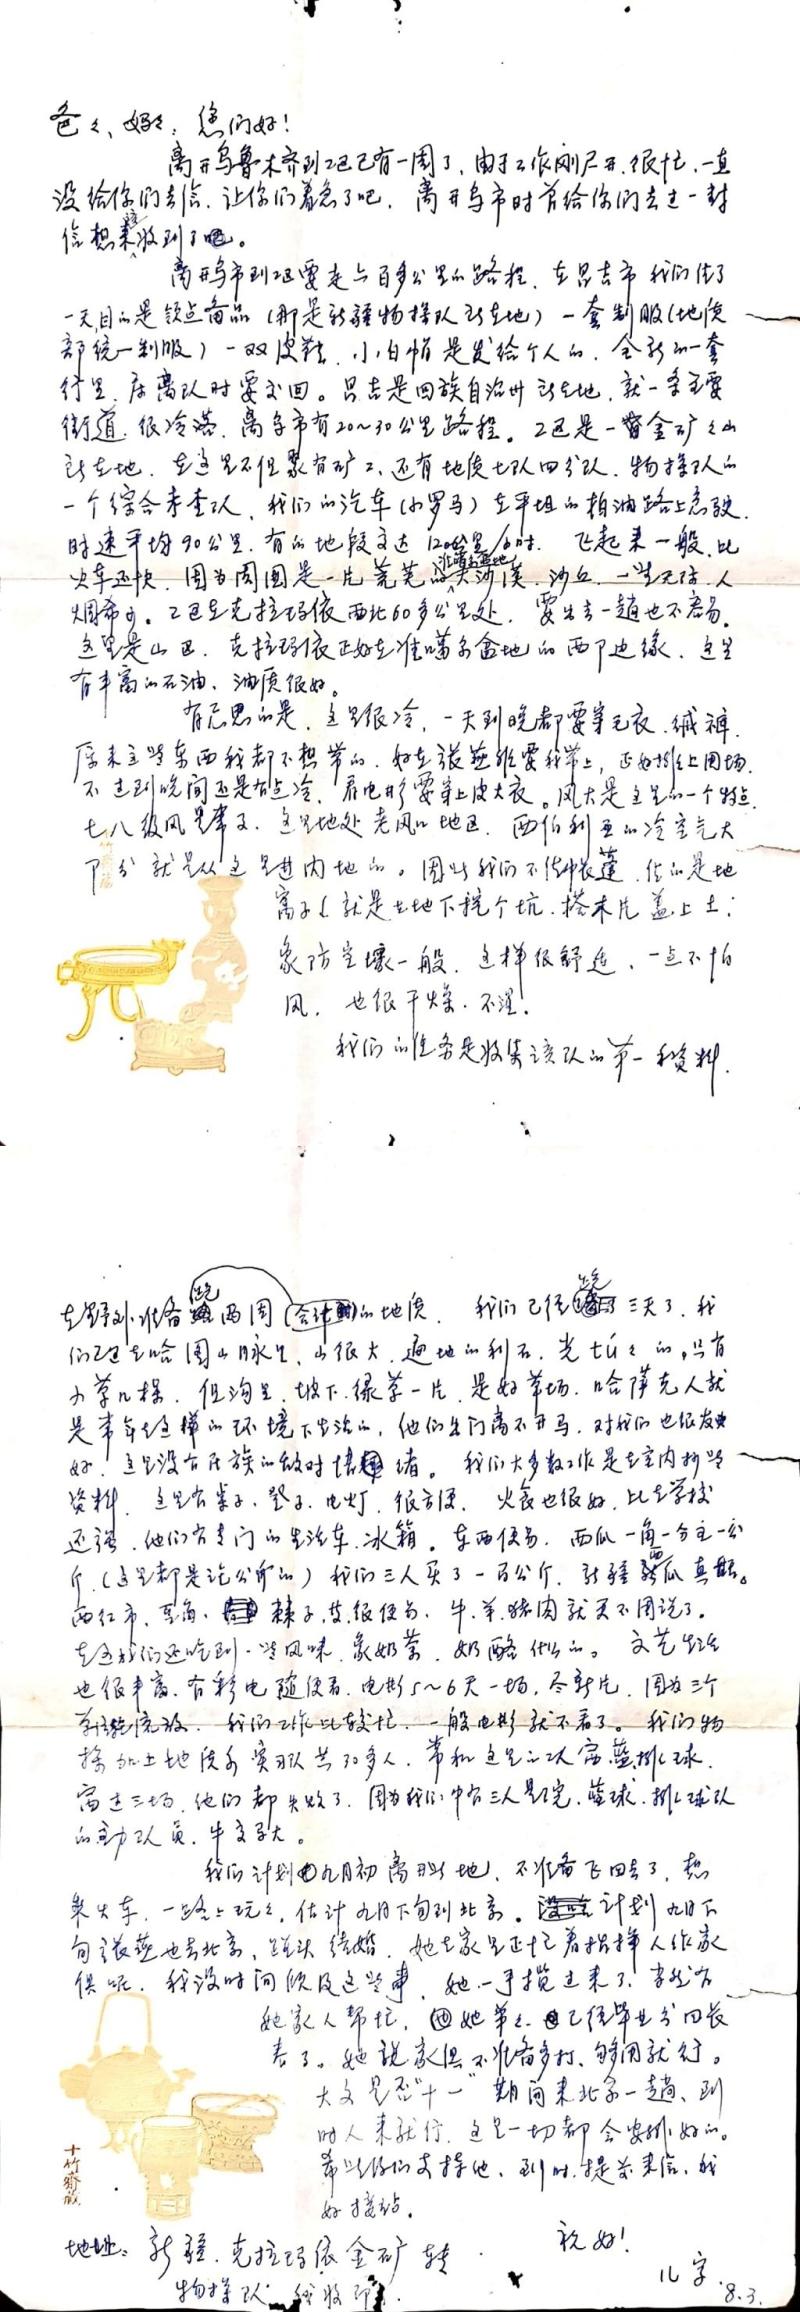 爸々、妈々：您们好！
离开乌鲁木齐到工区已有一周了，由于工作刚展开，很忙，一直
没给你们去信，让你们着急了吧，离开乌市时曾给你们去过一封
信想来收到了吧。
离开乌市到工区要走六百多公里的路程，在昌吉市我们住了
一天，目的是领点备品（那是新疆物探队所在地）一套制服（地质
部统一制服）一双皮鞋，小白帽是发给个人的，全新的一套
行里，床离队时要交回。昌吉是回族自治州所在地，就一条主要
街道，很冷落，离乌市有20～30公里路程。工区是一金矿矿山
所在地，在这里不但聚有矿工，还有地质七队四分队，物探队的
一个综合普查队，我们的汽车（小罗马）在平坦的柏油路上急驶，
时速平均90公里，有的地段交达120公里/小时，飞起来一般，比
火车还快，因为周围是一片荒芜的大沙漠，沙丘，一望无际，人
准噶尔盆地
烟希少。工区在克拉玛依西北60多公里处，要出去一趟也不容易。
这里是山区，克拉玛依正好在准噶尔盆地的西部边缘，这里
有丰富的石油，油质很好。
有意思的是，这里很冷，一天到晚都要穿毛衣、绒裤，
原来这些东西我都不想带的，好在张燕非要我带上，正好排上用场，
不过到晚间还是有点冷，看电影要穿上皮大衣。风大是这里的一个特点，
七八级风是常事，这里地处老风口地区，西伯利亚的冷空气大
部分就是从这里进内地的。因此我们不住帐蓬，住的是地
窝子（就是在地下挖个坑，搭木片盖上土；
象防空壕一般，这样很舒适，一点不怕
风，也很干燥，不湿。
我们的任务是收集该队的第一手资料，
在野外准备跑两周（合计）的地质，我们已经跑三天了，我
们工区在哈图山脉里，山很大，遍地的利石，光秃々的，只有
小草几棵，但沟里，坡下绿草一片，是好草场，哈萨克人就
是常年在这样的环境下生活的，他们出门离不开马，对我们也很友
好，这里没有民族的敌对情绪。我们大多数工作是在室内抄些
资料，这里有桌子、登子、电灯，很方便，火食也很好，比在学校
还强，他们有专门的生活车、冰箱。东西便易，西瓜一角一分钱一公
斤，（这里都是论公斤的）我们三人买了一百公斤，新疆西瓜真甜。
西红市、豆角、辣子、菜很便易，牛、羊、猪肉就更不用说了。
在这我们还吃到一些风味，象奶茶，奶酪什么的。文艺生活
也很丰富，有彩电随便看，电影5～6天一场，尽新片，因为三个
单位轮流放，我们工作比较忙，一般电影就不看了。我们物
探加上地质系实习队共30多人，常和这里的工人赛蓝排球，
赛过三场，他们都失败了，因为我们中有三人是院蓝球、排球队
的主力队员，牛支子大。
我们计划九月初离开此地，不准备飞回去了，想
乘火车，一路上玩々，估计九月下旬到北京。计划九月下
旬张燕也去北京，碰头结婚，她在家里正忙着指挥人作家
俱呢，我没时间顾及这些事，她一手揽过来了，当然有
她家人帮忙，她弟々已经毕业分回长
春了。她说家俱不准备多打，够用就行。
大文是否“十一”期间来北京一趟，到
时人来就行，这里一切都会安排好的。
希望你们支持他，到时提前来信，我
好接站。
祝好！
地址：新疆克拉玛依金矿转
物探队 我收即可。
儿字
8.3.
十竹斋藏